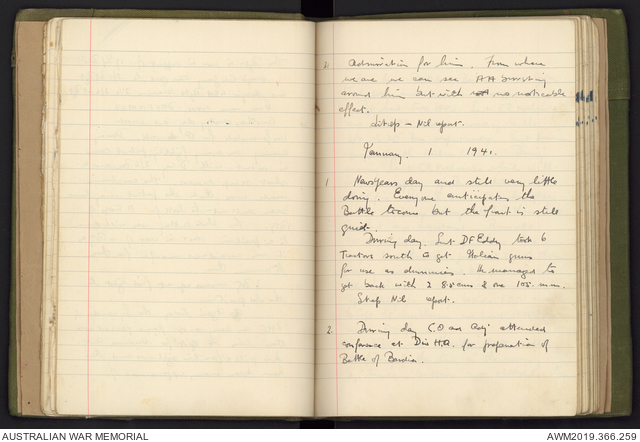 admiration for him. From where
we are we can see AA bursting
around him but with no noticeable
effect.
Sitrep - Nil report.
January. 1 1941.
1 New years day and still very little
doing. Everyone anticipates the
Battle to come but the front is still
quiet.
During day. Lut DF Eddy took 6
Tractors south to get Italian guns
for use as dummies. He managed to
get back with 2 8.5 cms & one 105. m.m.
Nil report.
2. During day C.O and Adj attended
conference at Div H.Q. for preparation of
Battle of Bardia.
AUSTRALIAN WAR MEMORIAL
AWM2019.366.259